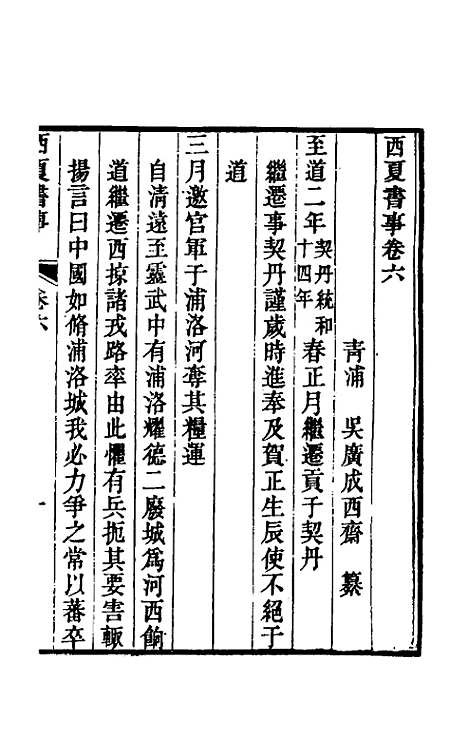 西夏書事卷六
青浦　吳廣成西齋　纂
至道二年契丹統和十四年春正月繼遷貢于契丹
繼遷事契丹謹歲時進奉及賀正生辰使不絕于
道
三月邀官軍于浦洛河奪其糧運
自清遠至靈武中有浦洛耀德二廢城爲河西餉
道繼遷西掠諸戎路率由此懼有兵扼其要害輙
揚言曰中國如脩浦洛城我必力爭之常以蕃卒
西夏書事
卷六
一